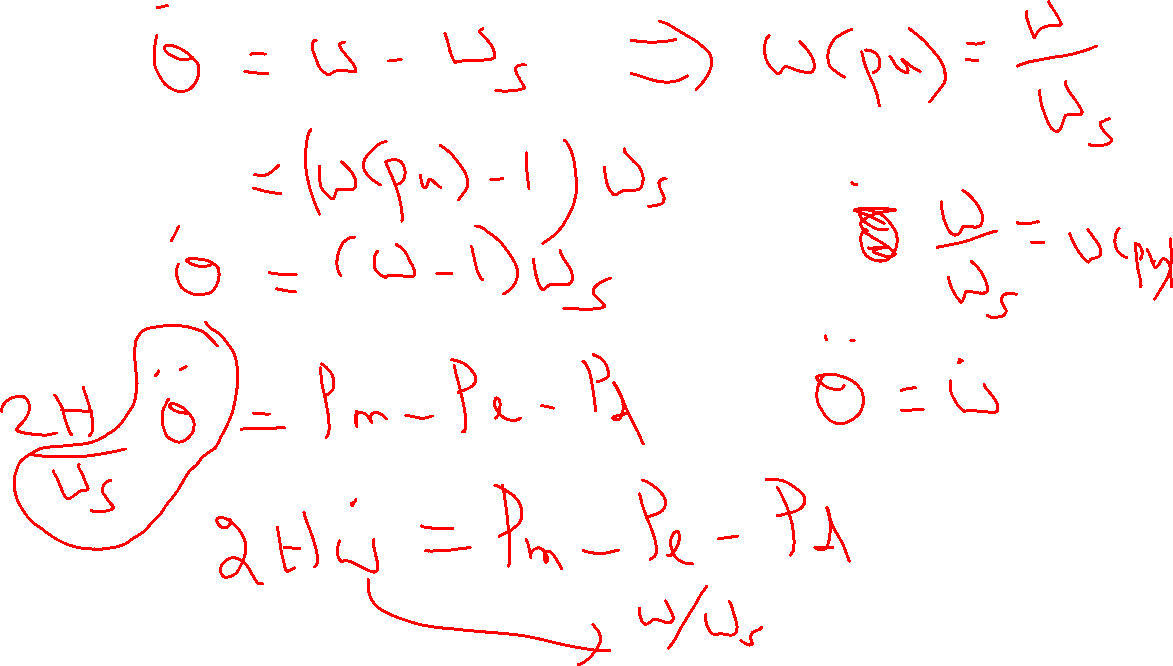 θ̇ = ω - ω_s ⇒ ω(pu) = ω/ω_s
= (ω(pu) - 1) ω_s
ω/ω_s = ω(pu)
θ̇ = (ω - 1) ω_s
2H/ω_s θ̈ = P_m - P_e - P_d
θ̈ = ω̇
2H ω̇ = P_m - P_e - P_d
ω/ω_s